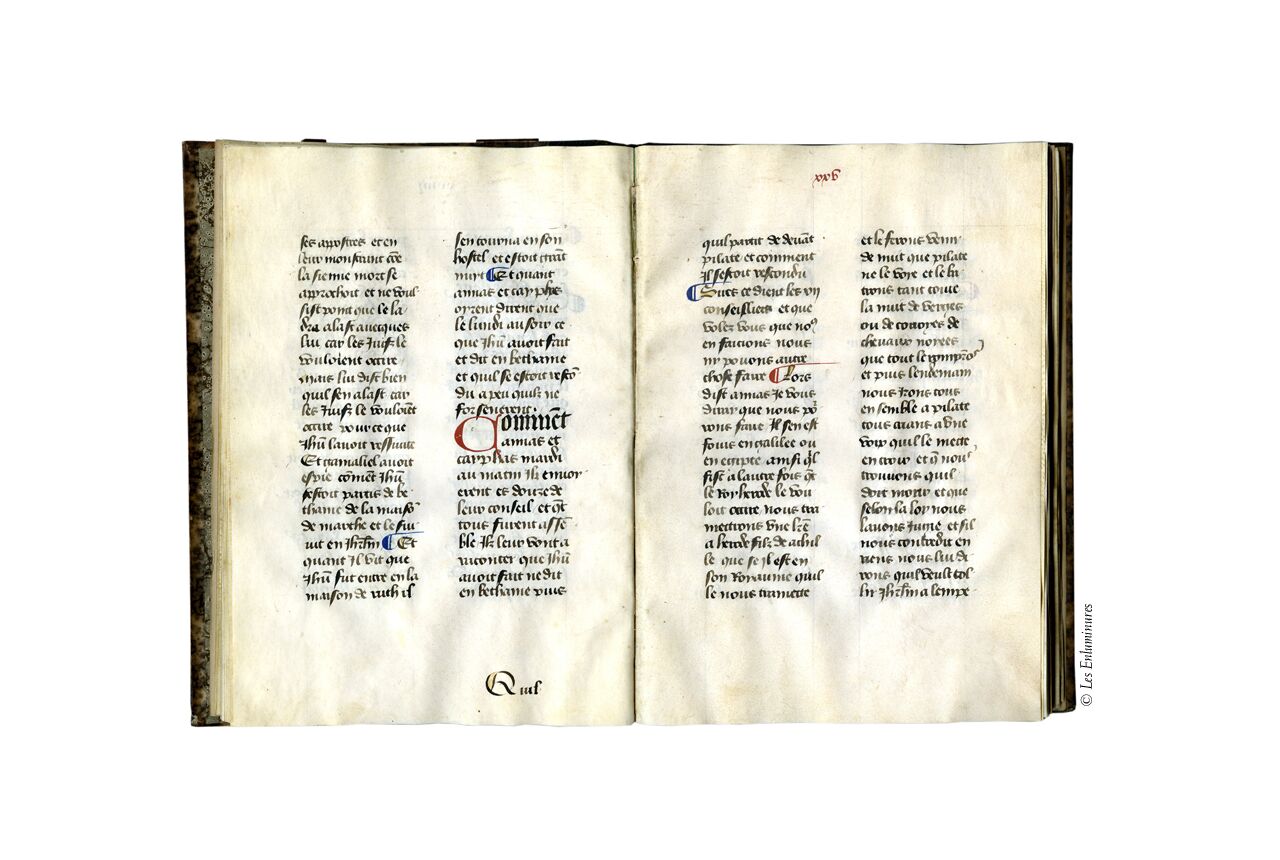 ses appostres et en
leur monstrant cõe
la sienne mort se
approchoit et ne voul
sist point que le la
dra alast auecques
lui car les Juifz le
vouloient occire
mais lui dist bien
quil sen alast car
les Juifz le vouloiẽt
occire pour ce que
Jhũ lauoit ressuscite
Et gamaliel auoit
espie comẽt Jhũ
sestoit partis de be
thanie de la maisõ
de marthe et le sui
uit en Jhrlm ¶ Et
quant il vit que
Jhũ fut entre en la
maison de ruth il
sen tourna en son
hostel et estoit
nuyt ¶ Et quant
annas et cayphas
oyrent dirent que
le lundi au soir ce
que Jhũ auoit fait
et dit en bethanie
et quil se estoit respõ
du a peu quilz ne
forsenerent
Commẽt
annas et
cayphas mardi
au matin Ilz enuoy
erent es douze de
leur conseil et qñt
tous furent assẽ
ble Ilz leur vont a
raconter que Jhũ
auoit fait ne dit
en bethanie puis
Quil
xxv
quil partit de deuãt
pilate et comment
Il sestoit respondu
¶ Sires ce dient les vii
conseilliers et que
volez vous que noꝰ
en facions nous
ny pouons autre
chose faire ¶ Lors
dist annas Je vous
diray que nous põ
rons faire Il sen est
fouis en galilee ou
en egipte ainsi ql
fist a lautre fois qñt
le Roy herode le vou
loit occire nous tra
mectrons vne lrẽ
a herode filz de achil
le que se il est en
son Royaume quil
le nous tramette
et le ferons venir
de nuit que pilate
ne le voye et le ba
trons tant toute
la nuit de verges
ou de couroyes de
cheuaux noyees
que tout le rompõs
et puis lendemain
nous Irons tous
en semble a pilate
tous crians a vne
voix quil le mecte
en croix et q̃ nous
trouuons quil
doit morir et que
selon la loy nous
lauons Jugie et sil
nous contredit en
riens nous lui di
rons quil veult tol
lir Jhrlm a lempe
© Les Enluminures